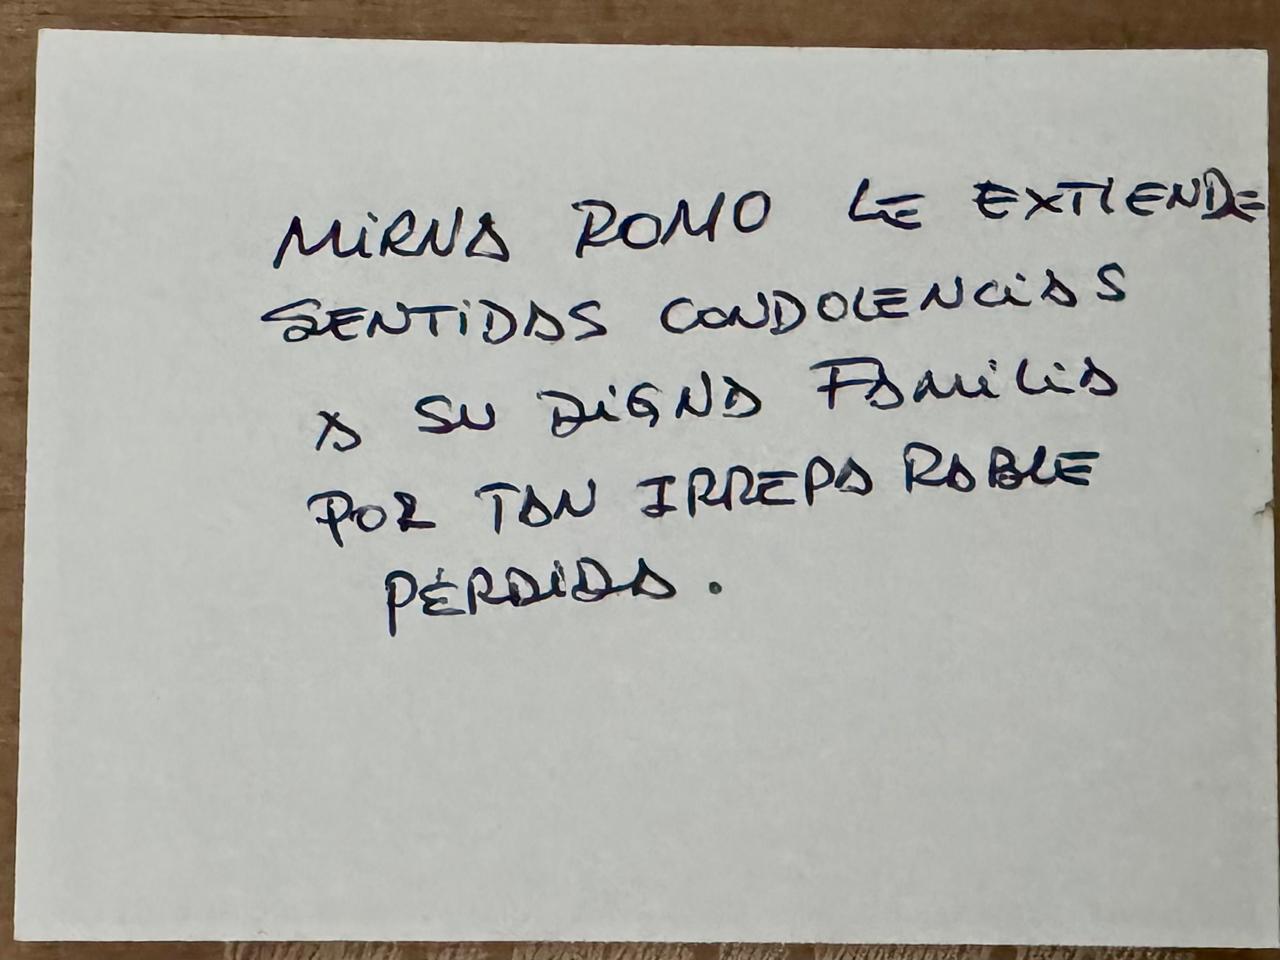 MiRNA ROMO LE EXTIENDE
SENTiDAS CONDOLENCiAS
A SU DiGNA FAMiLiA
POR TAN IRREPARABLE
PÉRDIDA.